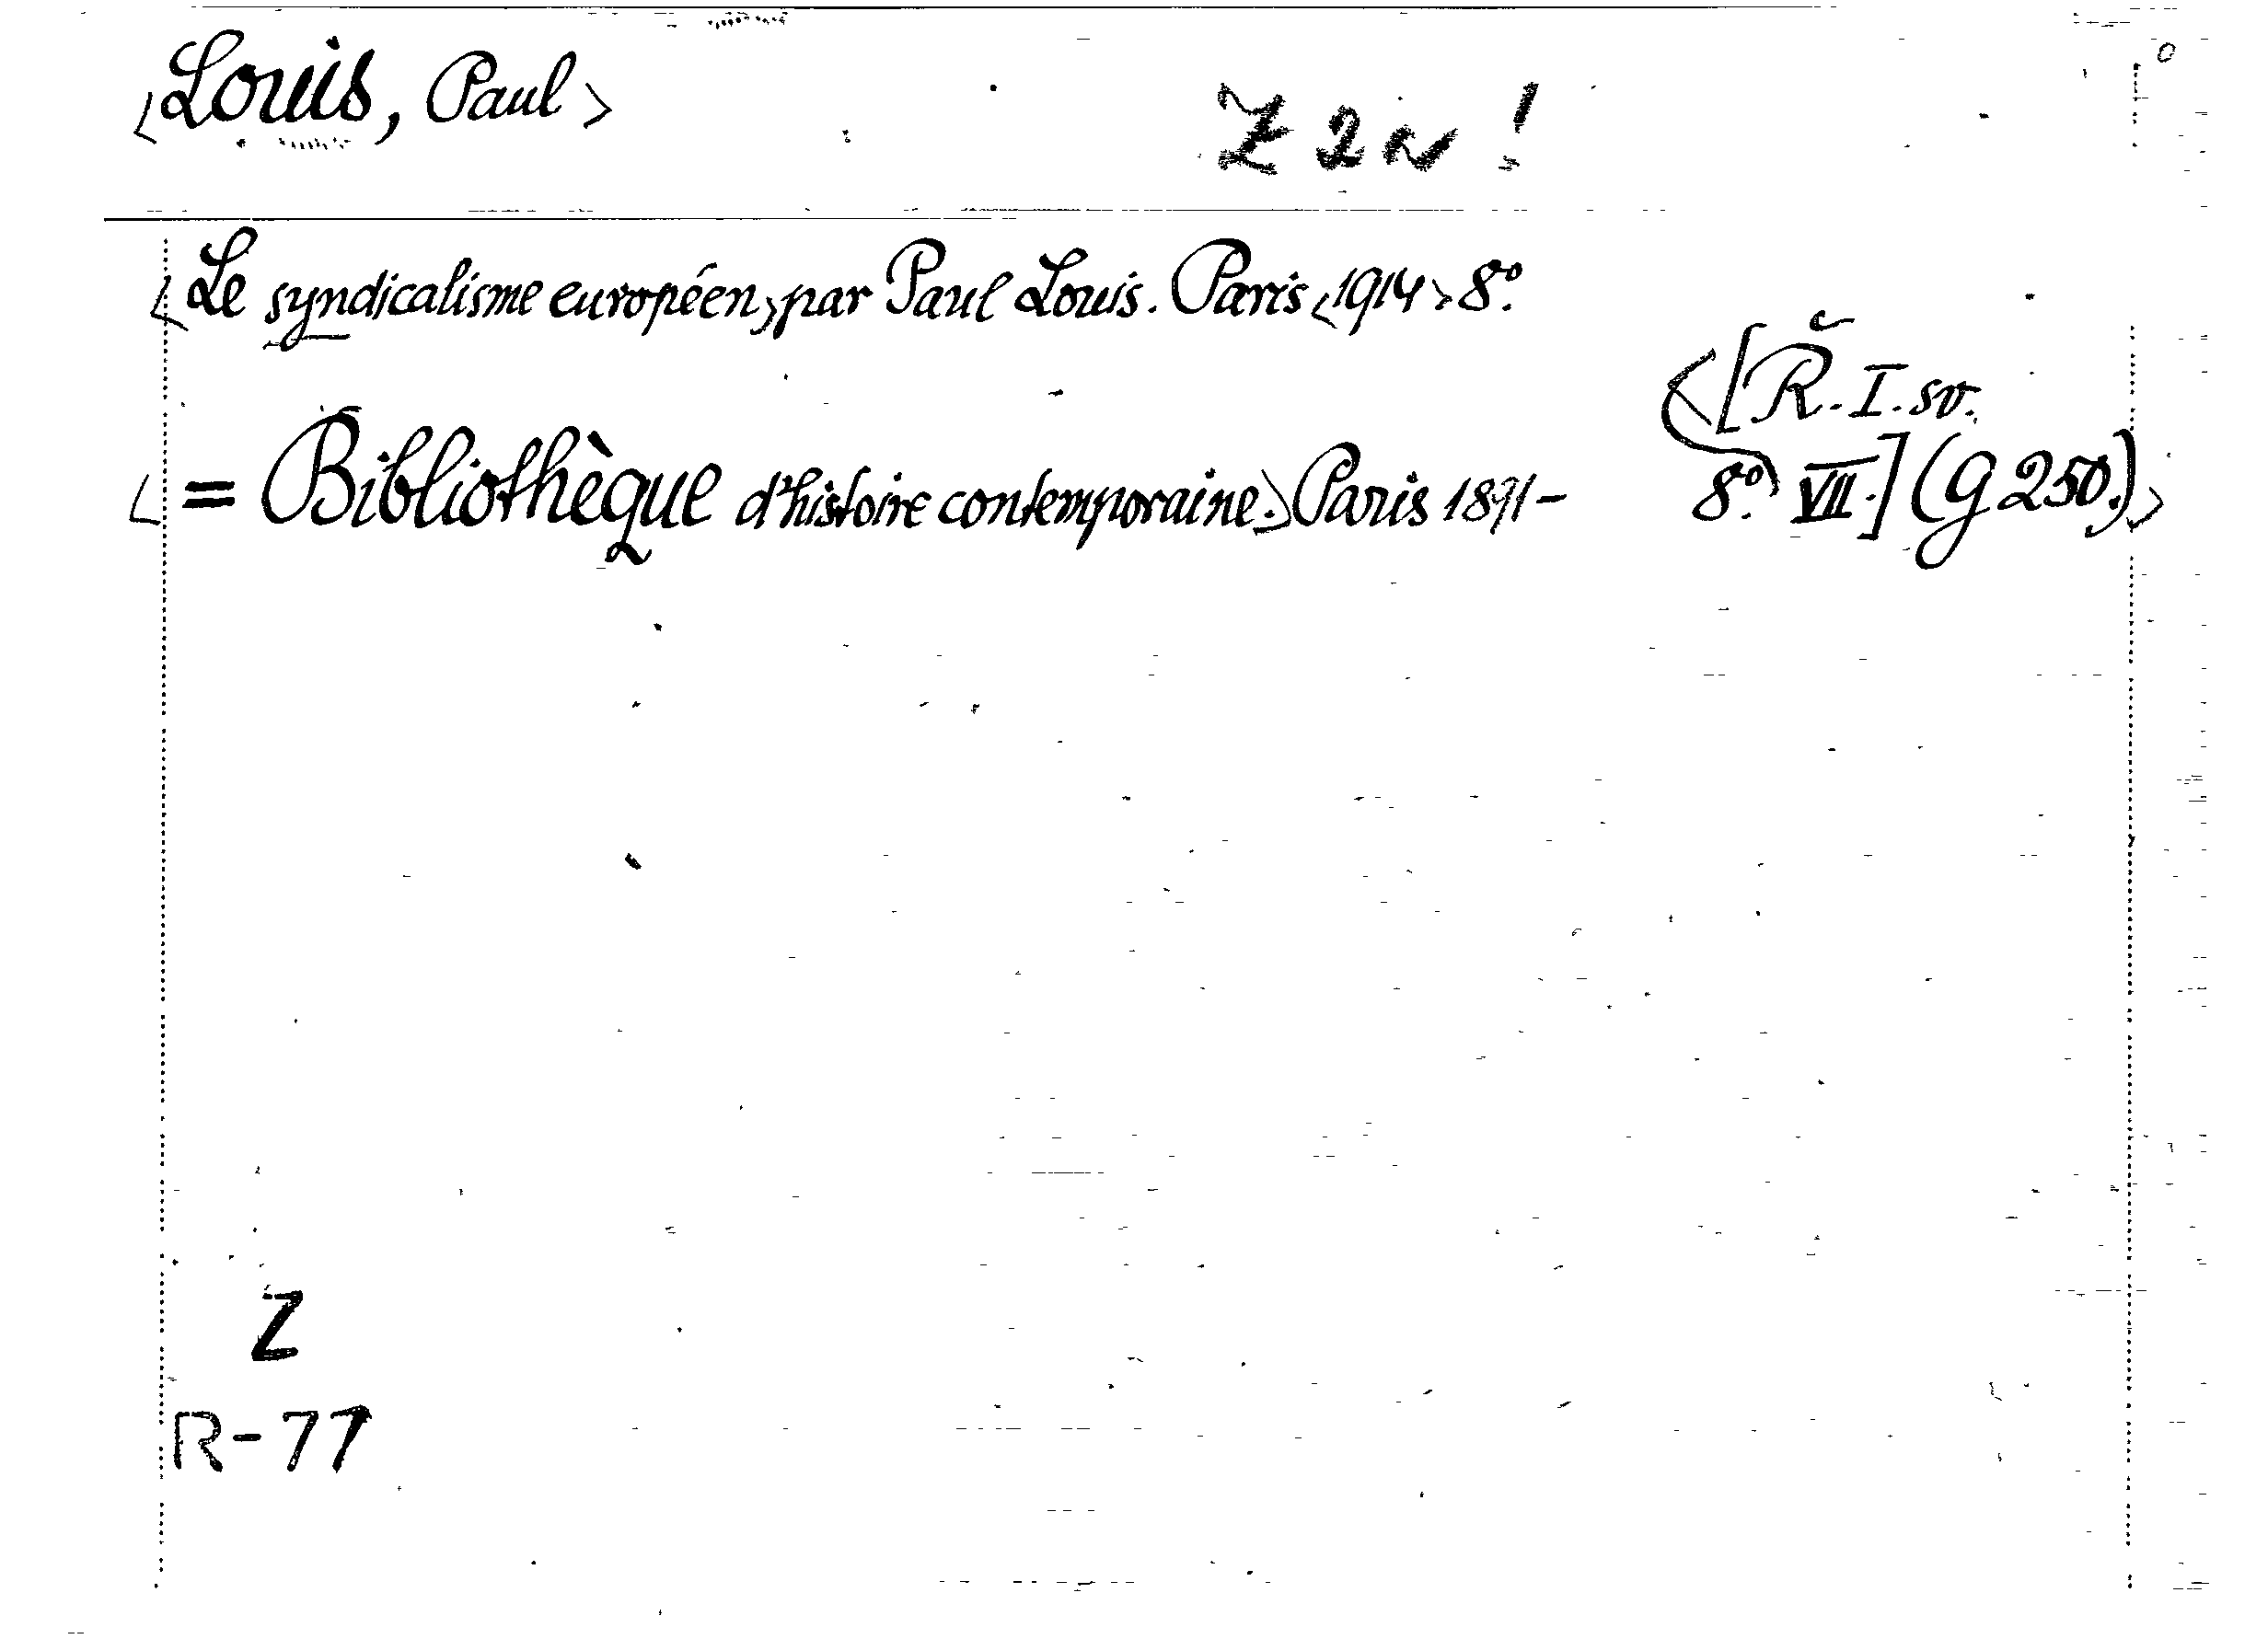 <Louis, Paul>
Z 2 N !
<Le syndicalisme européen, par Paul Louis. Paris <1914> 8º.
<[Ř. I. sv.
<= Bibliothèque d'histoire contemporaine.> Paris 1891- 8º. VII.] (G 250.)>
Z
R-77